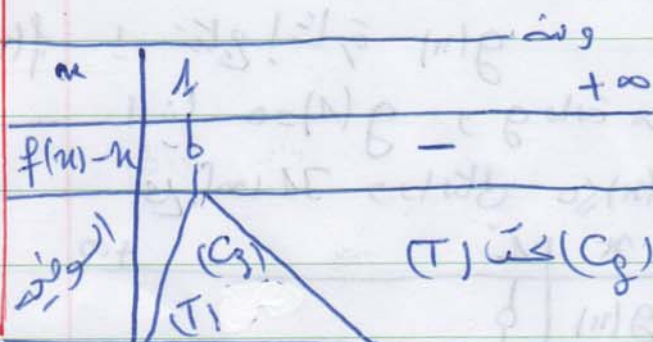 ومنه
x 1 +∞
f(x)-x 0 −
الوضعية (Cf) (Cf) تحت (T)
(T)